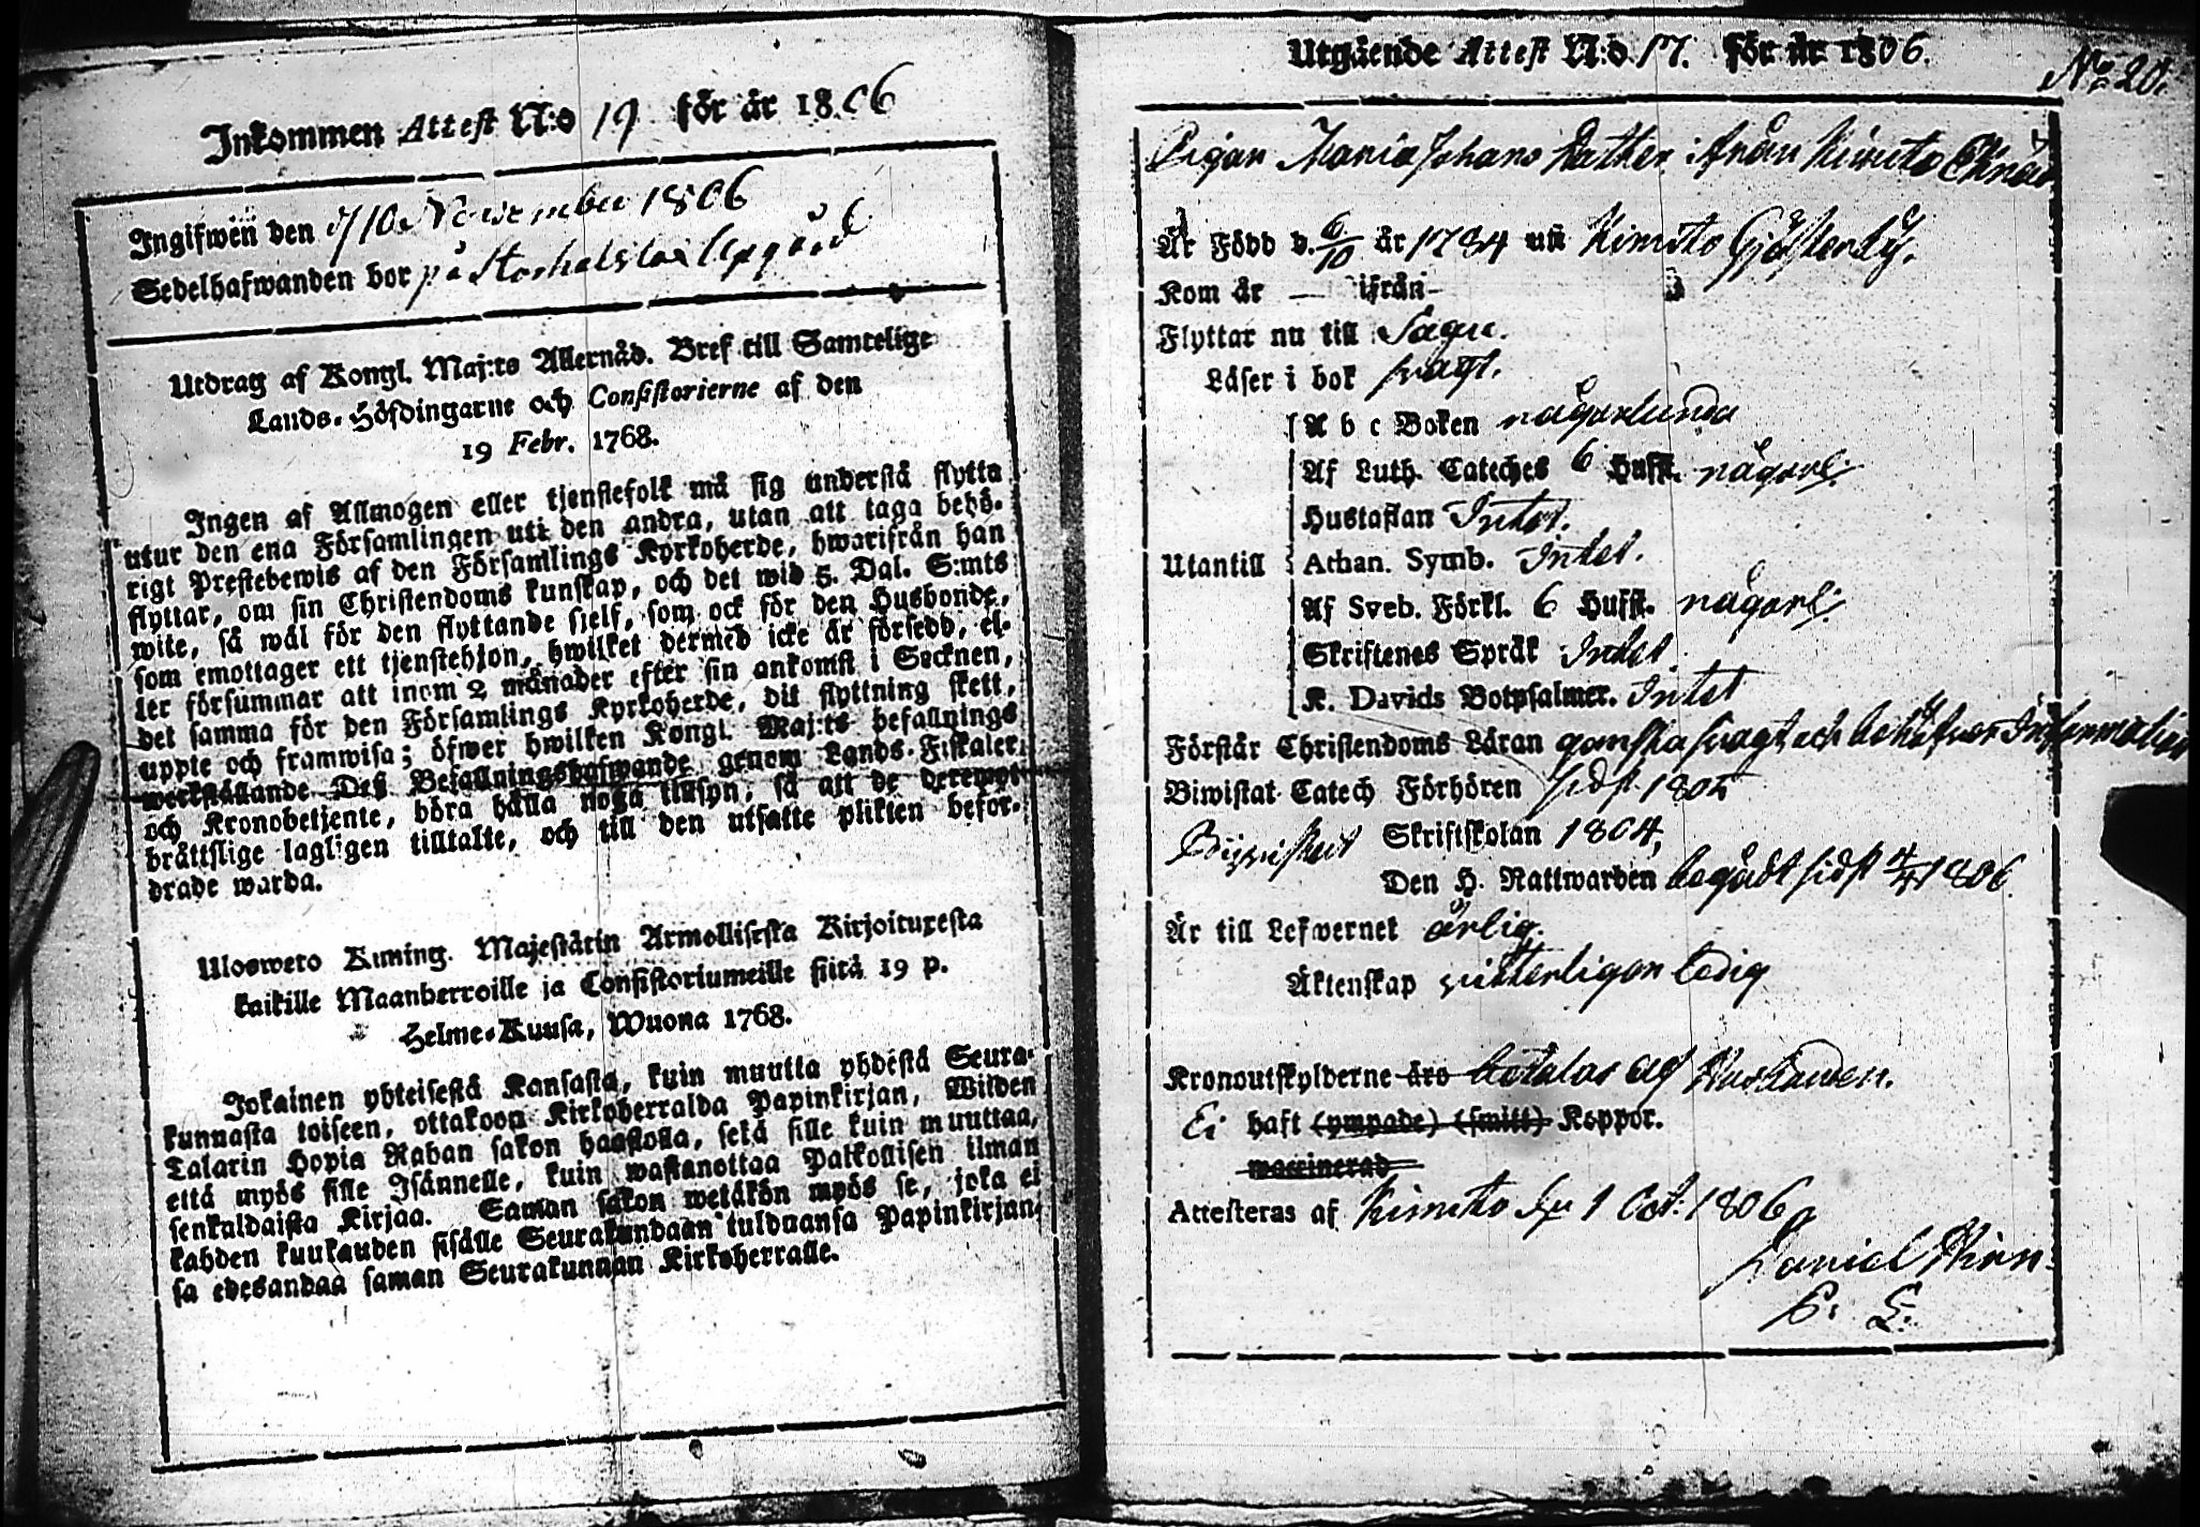 Inkommen Attest N:o 19 för år 1806
Ingifwen den November 1806
Sedelhafwanden bor på
Utdrag af Kongl. Maj:ts Allernåd. Bref till Samtelige
Lands-Höfdingarne och Consistorierne af den
19 Febr. 1768.
Ingen af Allmogen eller tjenstefolk må sig understå flytta
utur den ena Församlingen uti den andra, utan att taga behö-
rigt Prestebewis af den Församlings Kyrkoherde, hwarifrån han
flyttar, om sin Christendoms kunskap, och det wid 5. Dal. S:mts
wite, så wäl för den flyttande sjelf, som ock för den Husbonde,
som emottager ett tjenstehjon, hwilket dermed icke är försedd, el-
ler försummar att inom 2 månader efter sin ankomst i Socknen,
det samma för den Församlings Kyrkoherde, dit flyttning skett,
uppte och framwisa; öfwer hwilken Kongl. Maj:ts befallnings
werkställande Deß Befallningshafwande genom Lands-Fiskaler
och Kronobetjente, böra hålla noga tillsyn, så att de deremot
bråttslige lagligen tilltalte, och till den utsatte plikten befor-
drade warda.
Ulosweto Kuning. Majestätin Armollisesta Kirjoituxesta
kaikille Maanherroille ja Consistoriumeille siitä 19 p.
Helme-Kuusa, Wuona 1768.
Jokainen yhteisestä Kansasta, kuin muutta yhdestä Seura-
kunnasta toiseen, ottakoon Kirkoherralda Papinkirjan, Wiiden
Talarin Hopia Rahan sakon haastolla, sekä sille kuin muuttaa,
että myös sille Isännelle, kuin wastanottaa Palkollisen ilman
senkaldaista Kirjaa. Saman sakon wetäkön myös se, joka ei
kahden kuukauden sisälle Seurakundaan tulduansa Papinkirjan-
sa edesandaa saman Seurakunnan Kirkoherralle.
Utgående Attest N:o 17. för år 1806.
No 20.
Pigan Maria Johans Dotter ifrån Kimito
Är Född d. 6/10 år 1784 uti Kimito
Kom år — ifrån —
Flyttar nu till Sagu.
Läser i bok swagt.
A b c Boken någorlunda
Af Luth. Cateches 6 Hufst. någorl:
Hustaflan Intet.
Utantill Athan. Symb. Intet.
Af Sveb. Förkl. 6 Hufst. någorl:
Skriftenes Språk Intet
K. Davids Botpsalmer. Intet
Förstår Christendoms Läran ganska swagt och behöfwer Information
Biwistat Catech Förhören sidst 1805
Biwistat Skriftskolan 1804,
Den H. Nattwarden begådt sidst 1806
Är till Lefwernet ärlig.
Äktenskap witterligen ledig
Kronoutskylderne äro betalas af Husbonden.
Ei haft (ympade) (smitt) Koppor.
waccinerad
Attesteras af Kimito d. 1 Oct: 1806
Daniel